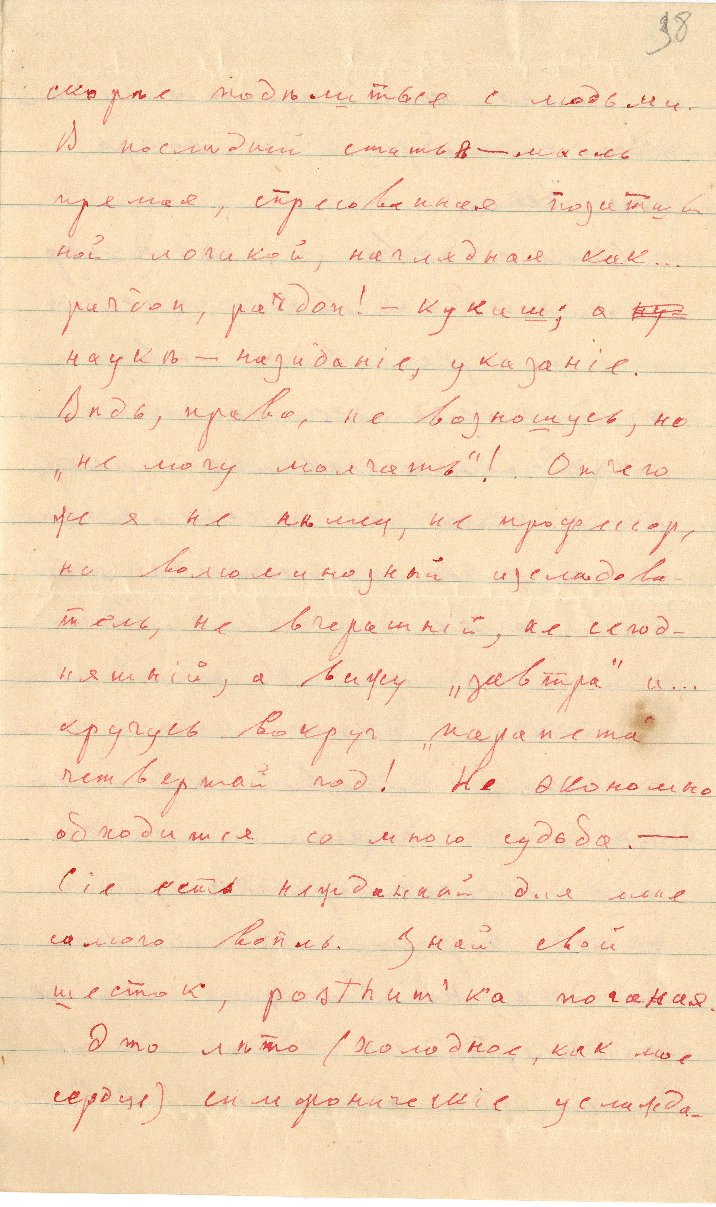 38
скорѣе подѣлиться с людьми.
В послѣдней статьѣ — мысль
прямая, спресованная позитив
ной логикой, наглядная как...
pardon, pardon! — кукиш; а ну
наукѣ — назиданіе, указаніе.
Вѣдь, право, не возношусь, но
„не могу молчать"! Отчего
же я не нѣмец, не профессор,
не волюминозный изслѣдова-
тель, не вчерашній, не сегод-
няшній, а вижу „завтра" и...
кручусь вокруг „парапета"
четвертый год! Не экономно
обходится со мною судьба. —
Сіе есть нежданный для мене
самого вопль. Знай свой
шесток, posthum'ка поганая.
Это лѣто (холодное, как мое
сердце) симфоническіе услажда-